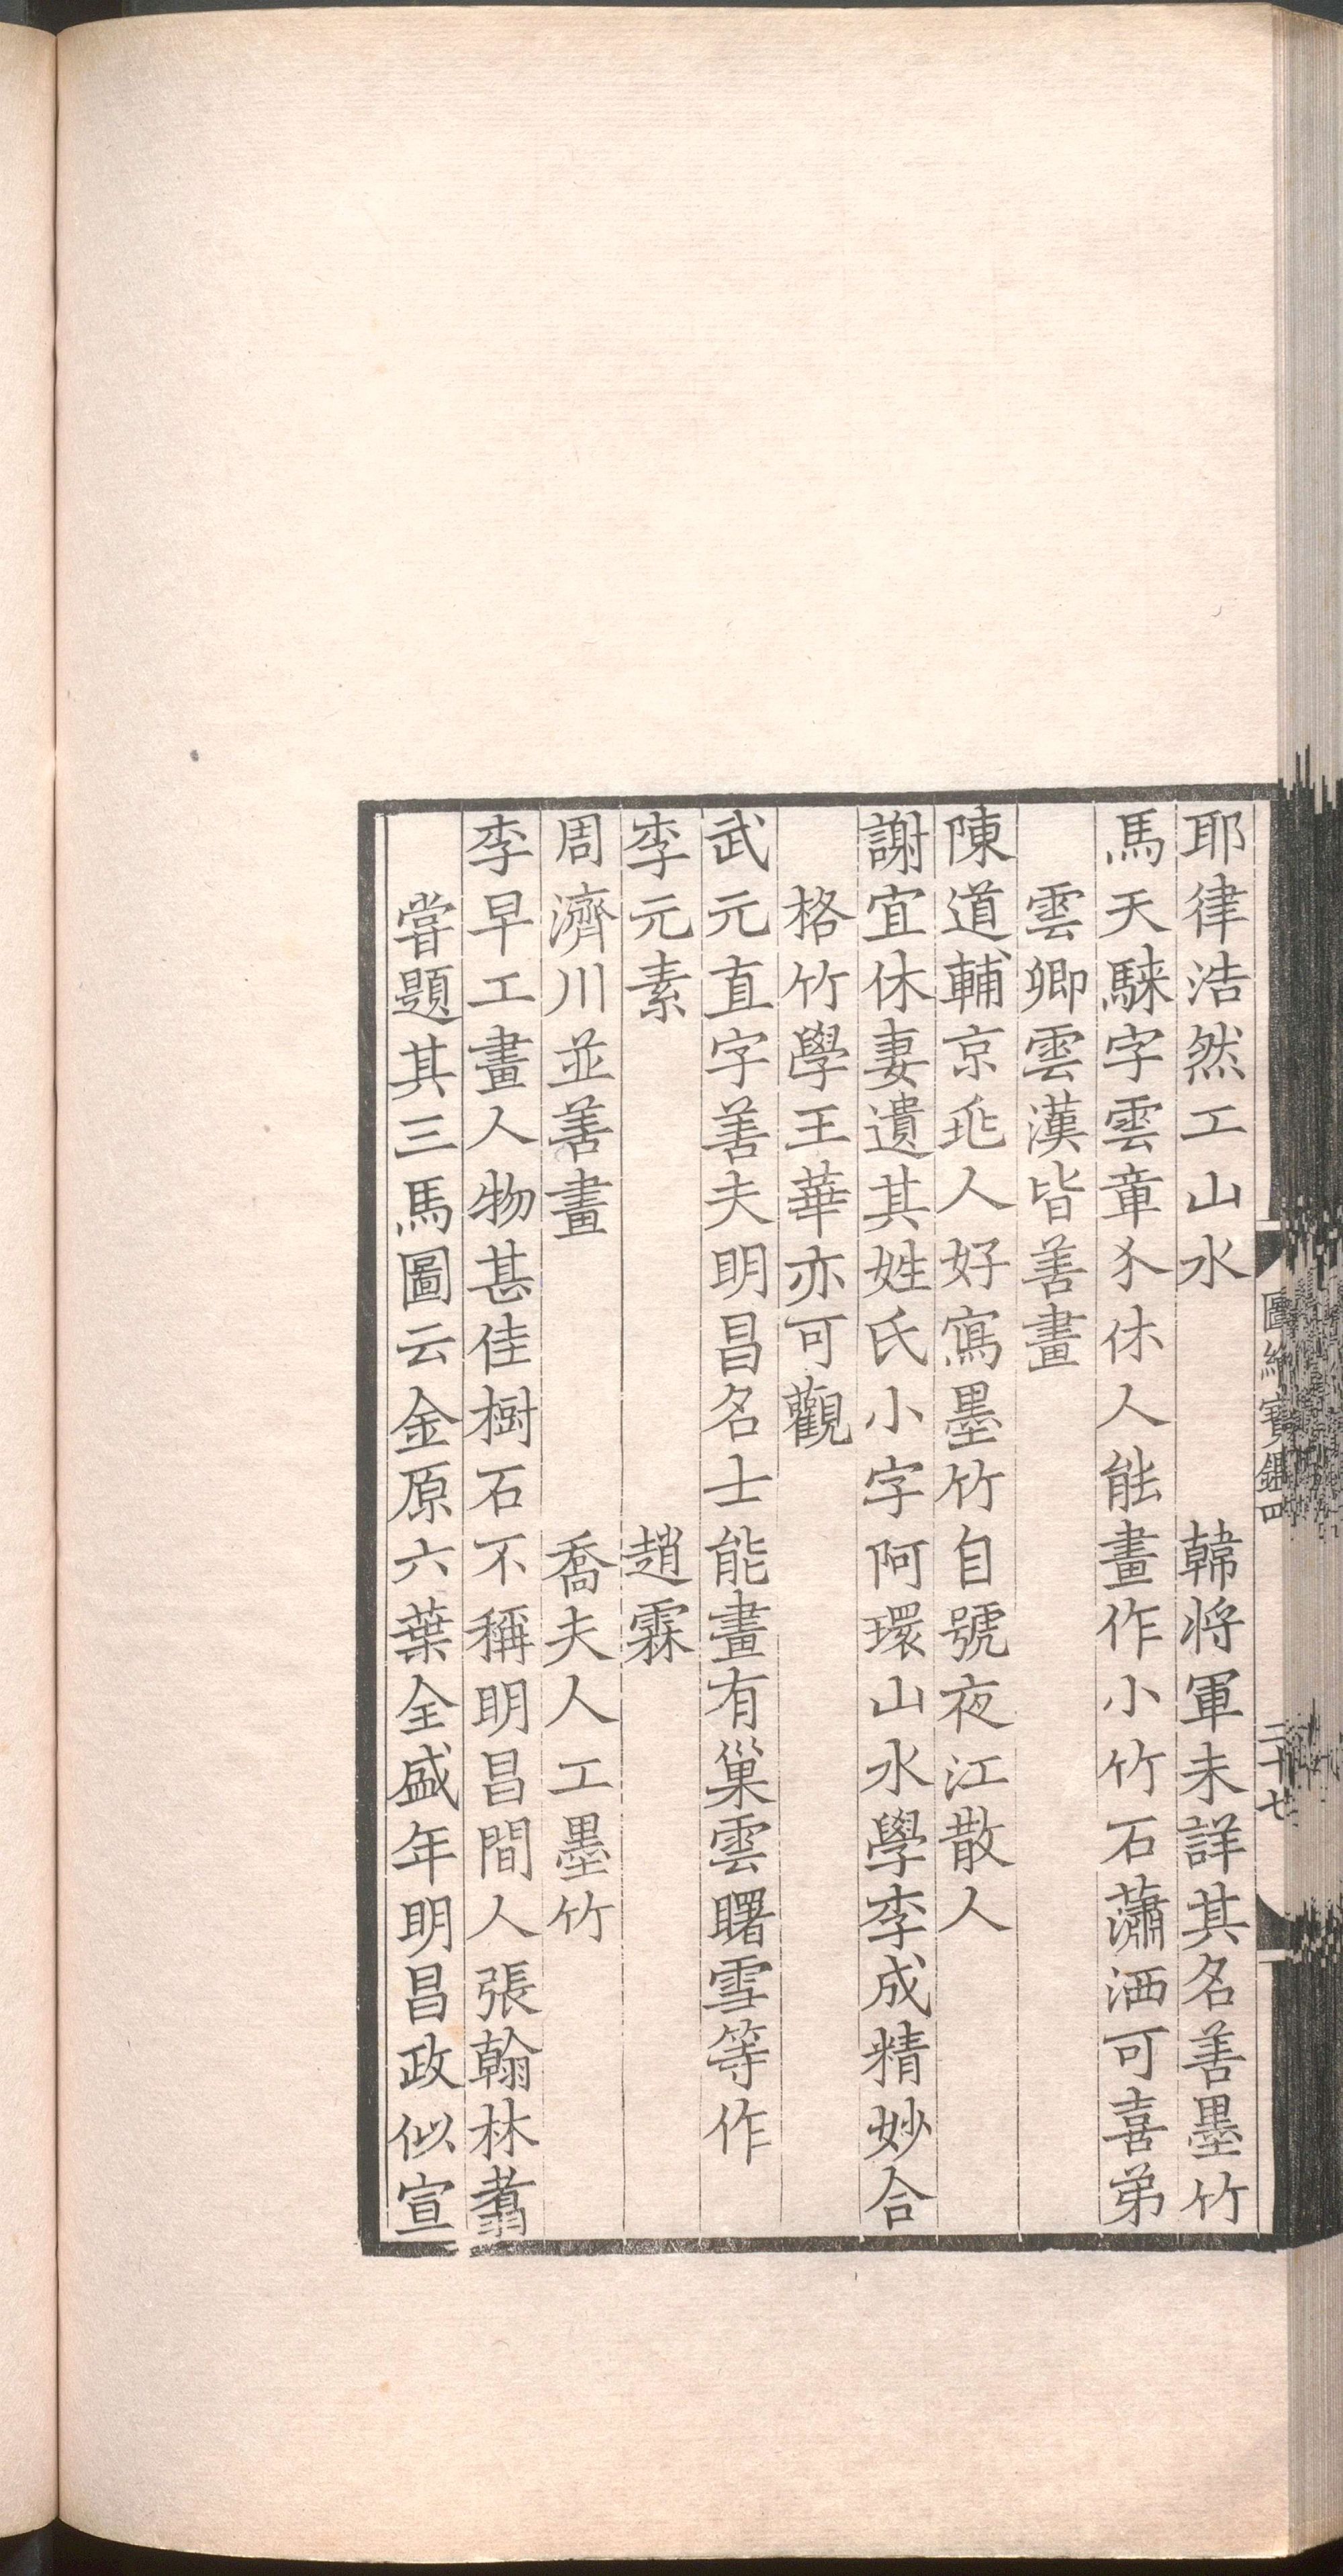 耶律浩然工山水　韓将軍未詳其名善墨竹
馬天騋字雲章尒休人能畫作小竹石蕭洒可喜弟
雲卿雲漢皆善畫
陳道輔京兆人好寫墨竹自號夜江散人
謝宜休妻遺其姓氏小字阿環山水學李成精妙合
格竹學王華亦可觀
武元直字善夫明昌名士能畫有巢雲曙雪等作
李元素　趙霖
周濟川並善畫　喬夫人工墨竹
李早工畫人物甚佳樹石不稱明昌間人張翰林翥
嘗題其三馬圖云金原六葉全盛年明昌政似宣
圖繪寶鑑四
二十七